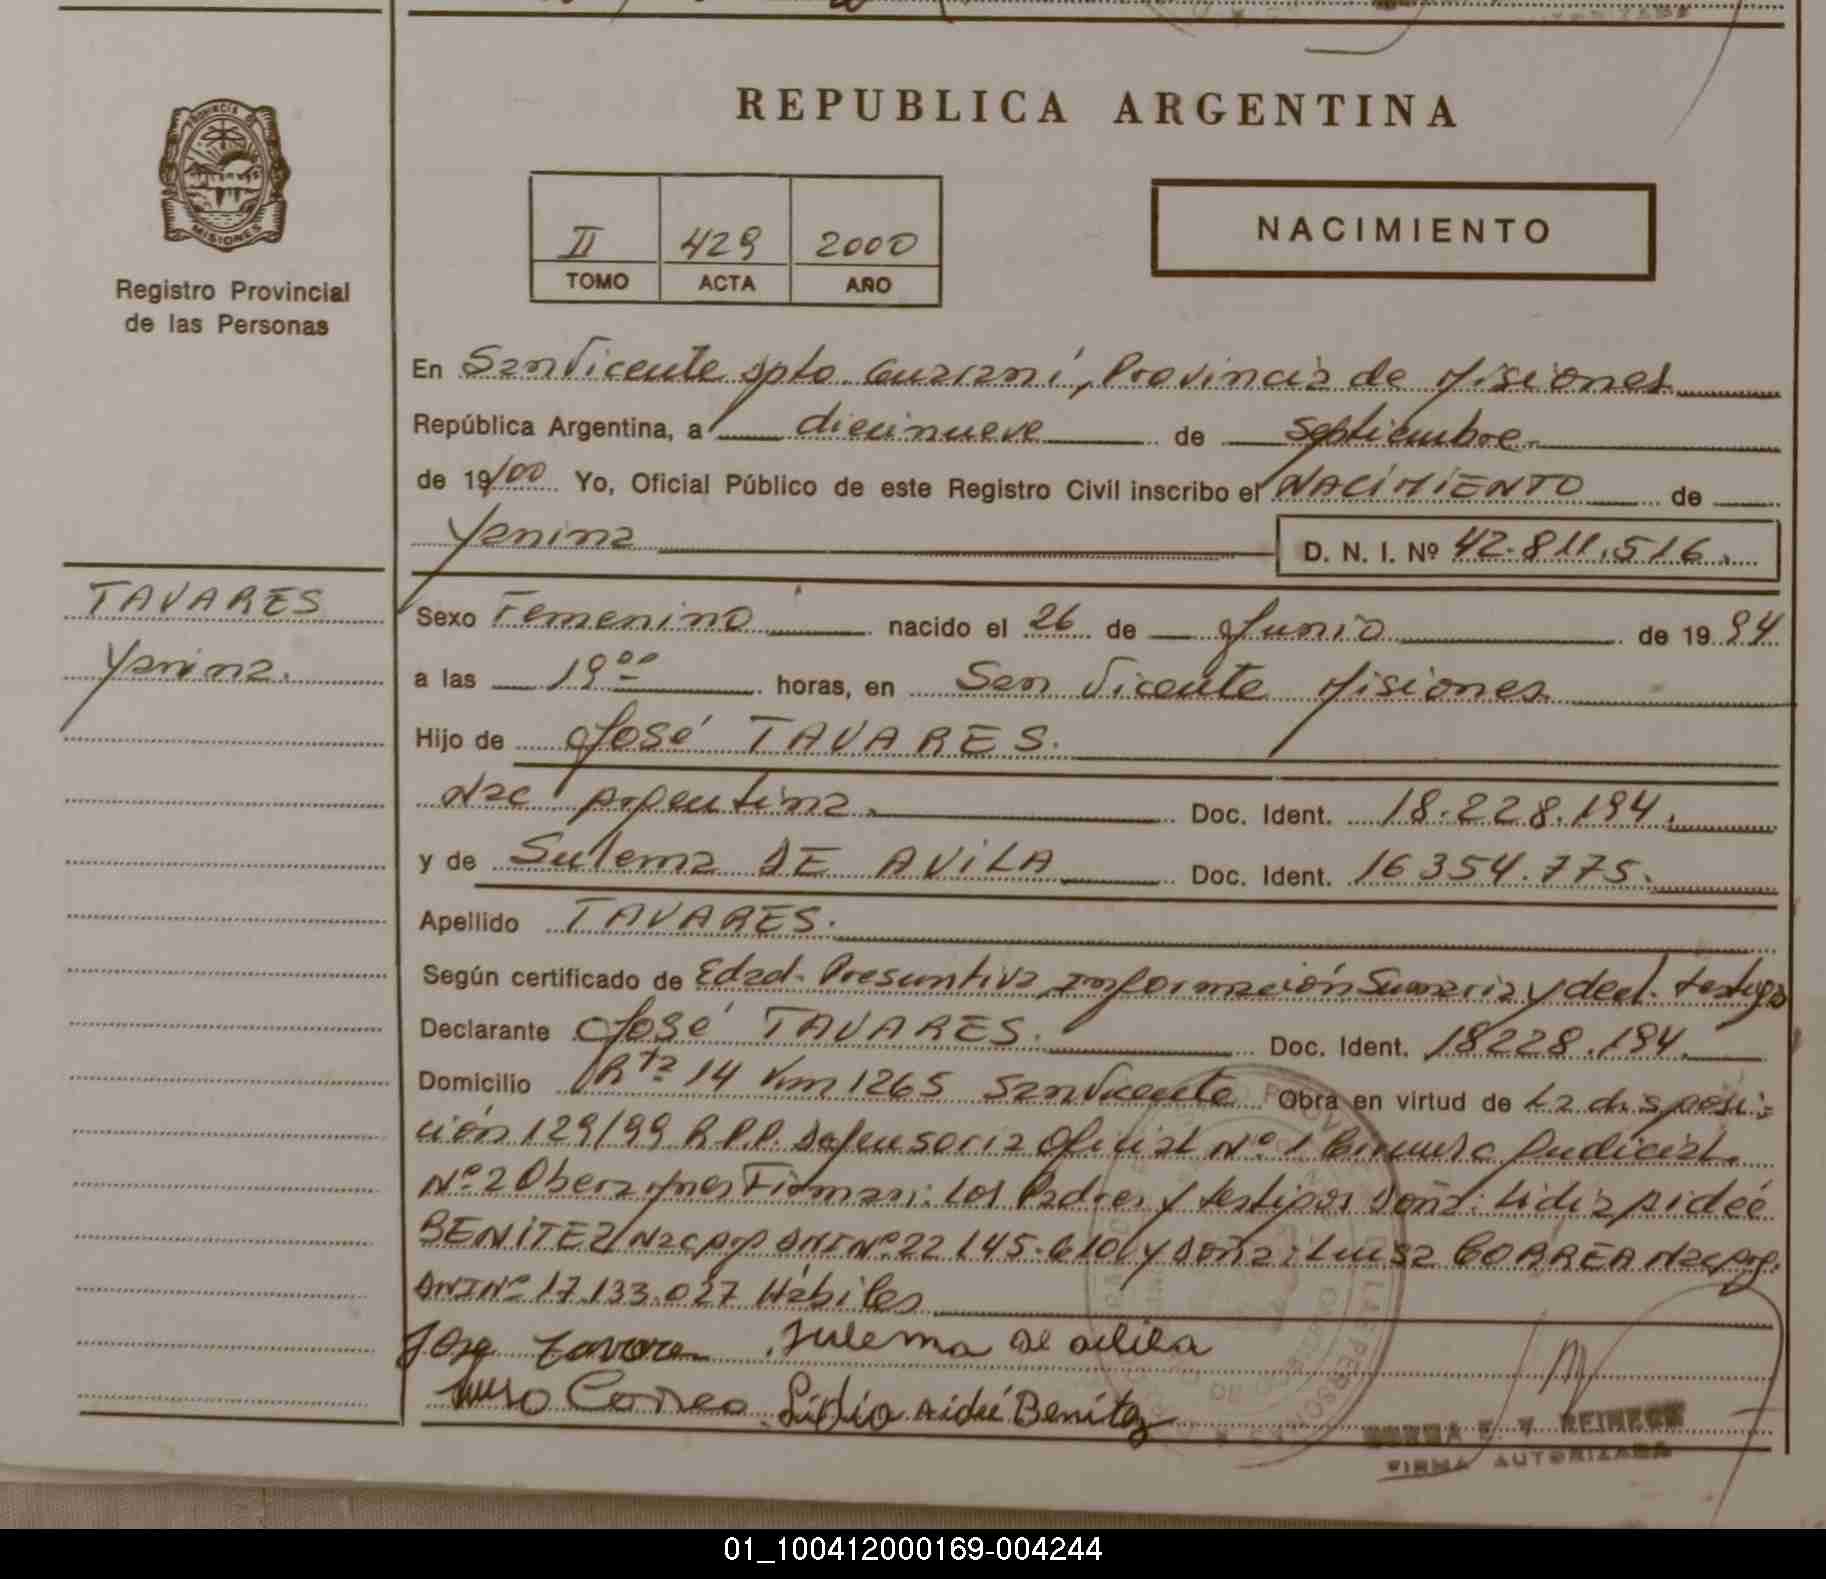 REPUBLICA ARGENTINA
PROVINCIA DE
MISIONES
Registro Provincial
de las Personas
II 429 2000
TOMO ACTA AÑO
NACIMIENTO
En San Vicente Dpto. Guaraní, Provincia de Misiones
República Argentina, a diecinueve de Septiembre
de 19/00 Yo, Oficial Público de este Registro Civil inscribo el NACIMIENTO de
Yanina D. N. I. Nº 42.811.516.
TAVARES
Yanina.
Sexo Femenino nacido el 26 de Junio de 19 94
a las 19 00 horas, en San Vicente Misiones
Hijo de José TAVARES.
Nac Argentina. Doc. Ident. 18.228.194.
y de Sulema DE AVILA Doc. Ident. 16354.775.
Apellido TAVARES.
Según certificado de Edad Presuntiva, Información Sumaria y decl. testigo
Declarante José TAVARES. Doc. Ident. 18228.194.
Domicilio Rta 14 Km 1265 San Vicente Obra en virtud de La disposi-
ción 129/99 R.P.P. Defensoria Oficial Nº 1 Judicial.
Nº 2 Obera Mnes Firman: Los Padres y testigos Doña: Lidia Aideé
BENITEZ Nac Arg DNI Nº 22.145.610 y Doña: Luisa CORREA Nac Arg.
DNI Nº 17.133.027 Hábiles
Jose Tavare Sulema de avila
Correa Lidia Aideé Benítez
REINECK
FIRMA AUTORIZADA
01_100412000169-004244